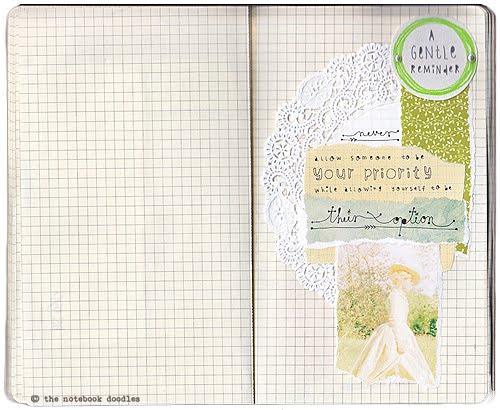 A
GENTLE
REMINDER
never
allow someone to be
YOUR PRIORITY
while allowing yourself to be
their option
© the notebook doodles